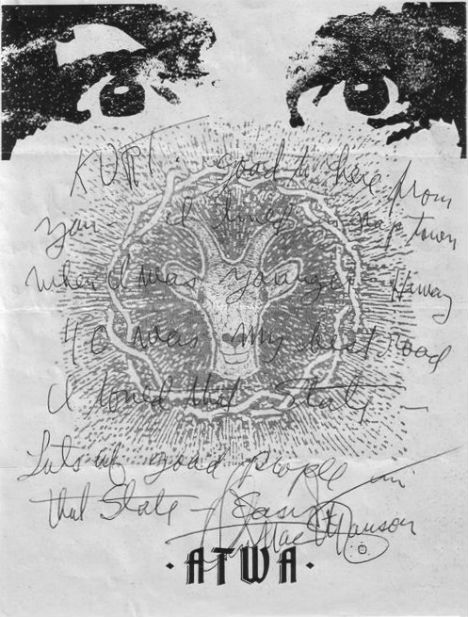 KURT. good to here from
you - I lived nap town
when I was younger. Hiway
40 was my best road
I loved that State -
Lots of good people in
that State - Easy
Manson
·ATWA·